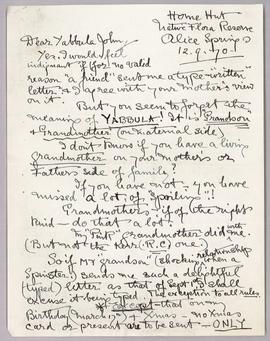 Home Hut
Native Flora Reserve
Alice Springs
12.9.70
Dear Yabbula John,
Yes, I would feel
indignant if (for no valid
reason "a friend" sent me a type-"written"
letter & I agree with your mother's view
on it
But you seem to forget the
meaning of YABBULA! It is Grandson
& Grandmother (on maternal side)
I don't know if you have a living
Grandmother on your mother's or
Father's side of family?
If you have not – you have
"missed a lot of spoiling"!
Grandmothers – if of the right
kind – do that a lot.
"Pratt" Grandmother did with me
(But not the Kerr (R.C) one)
So if MY "grandson" (shocking relationship to a
Spinster) sends me such a delightful
(typed) letter as that of Sept 1st I shall
excuse it being typed. The exception to all rules
is except – that on my
Birthday (March 7th) & Xmas – no Xmas
Card or present are to be sent – ONLY